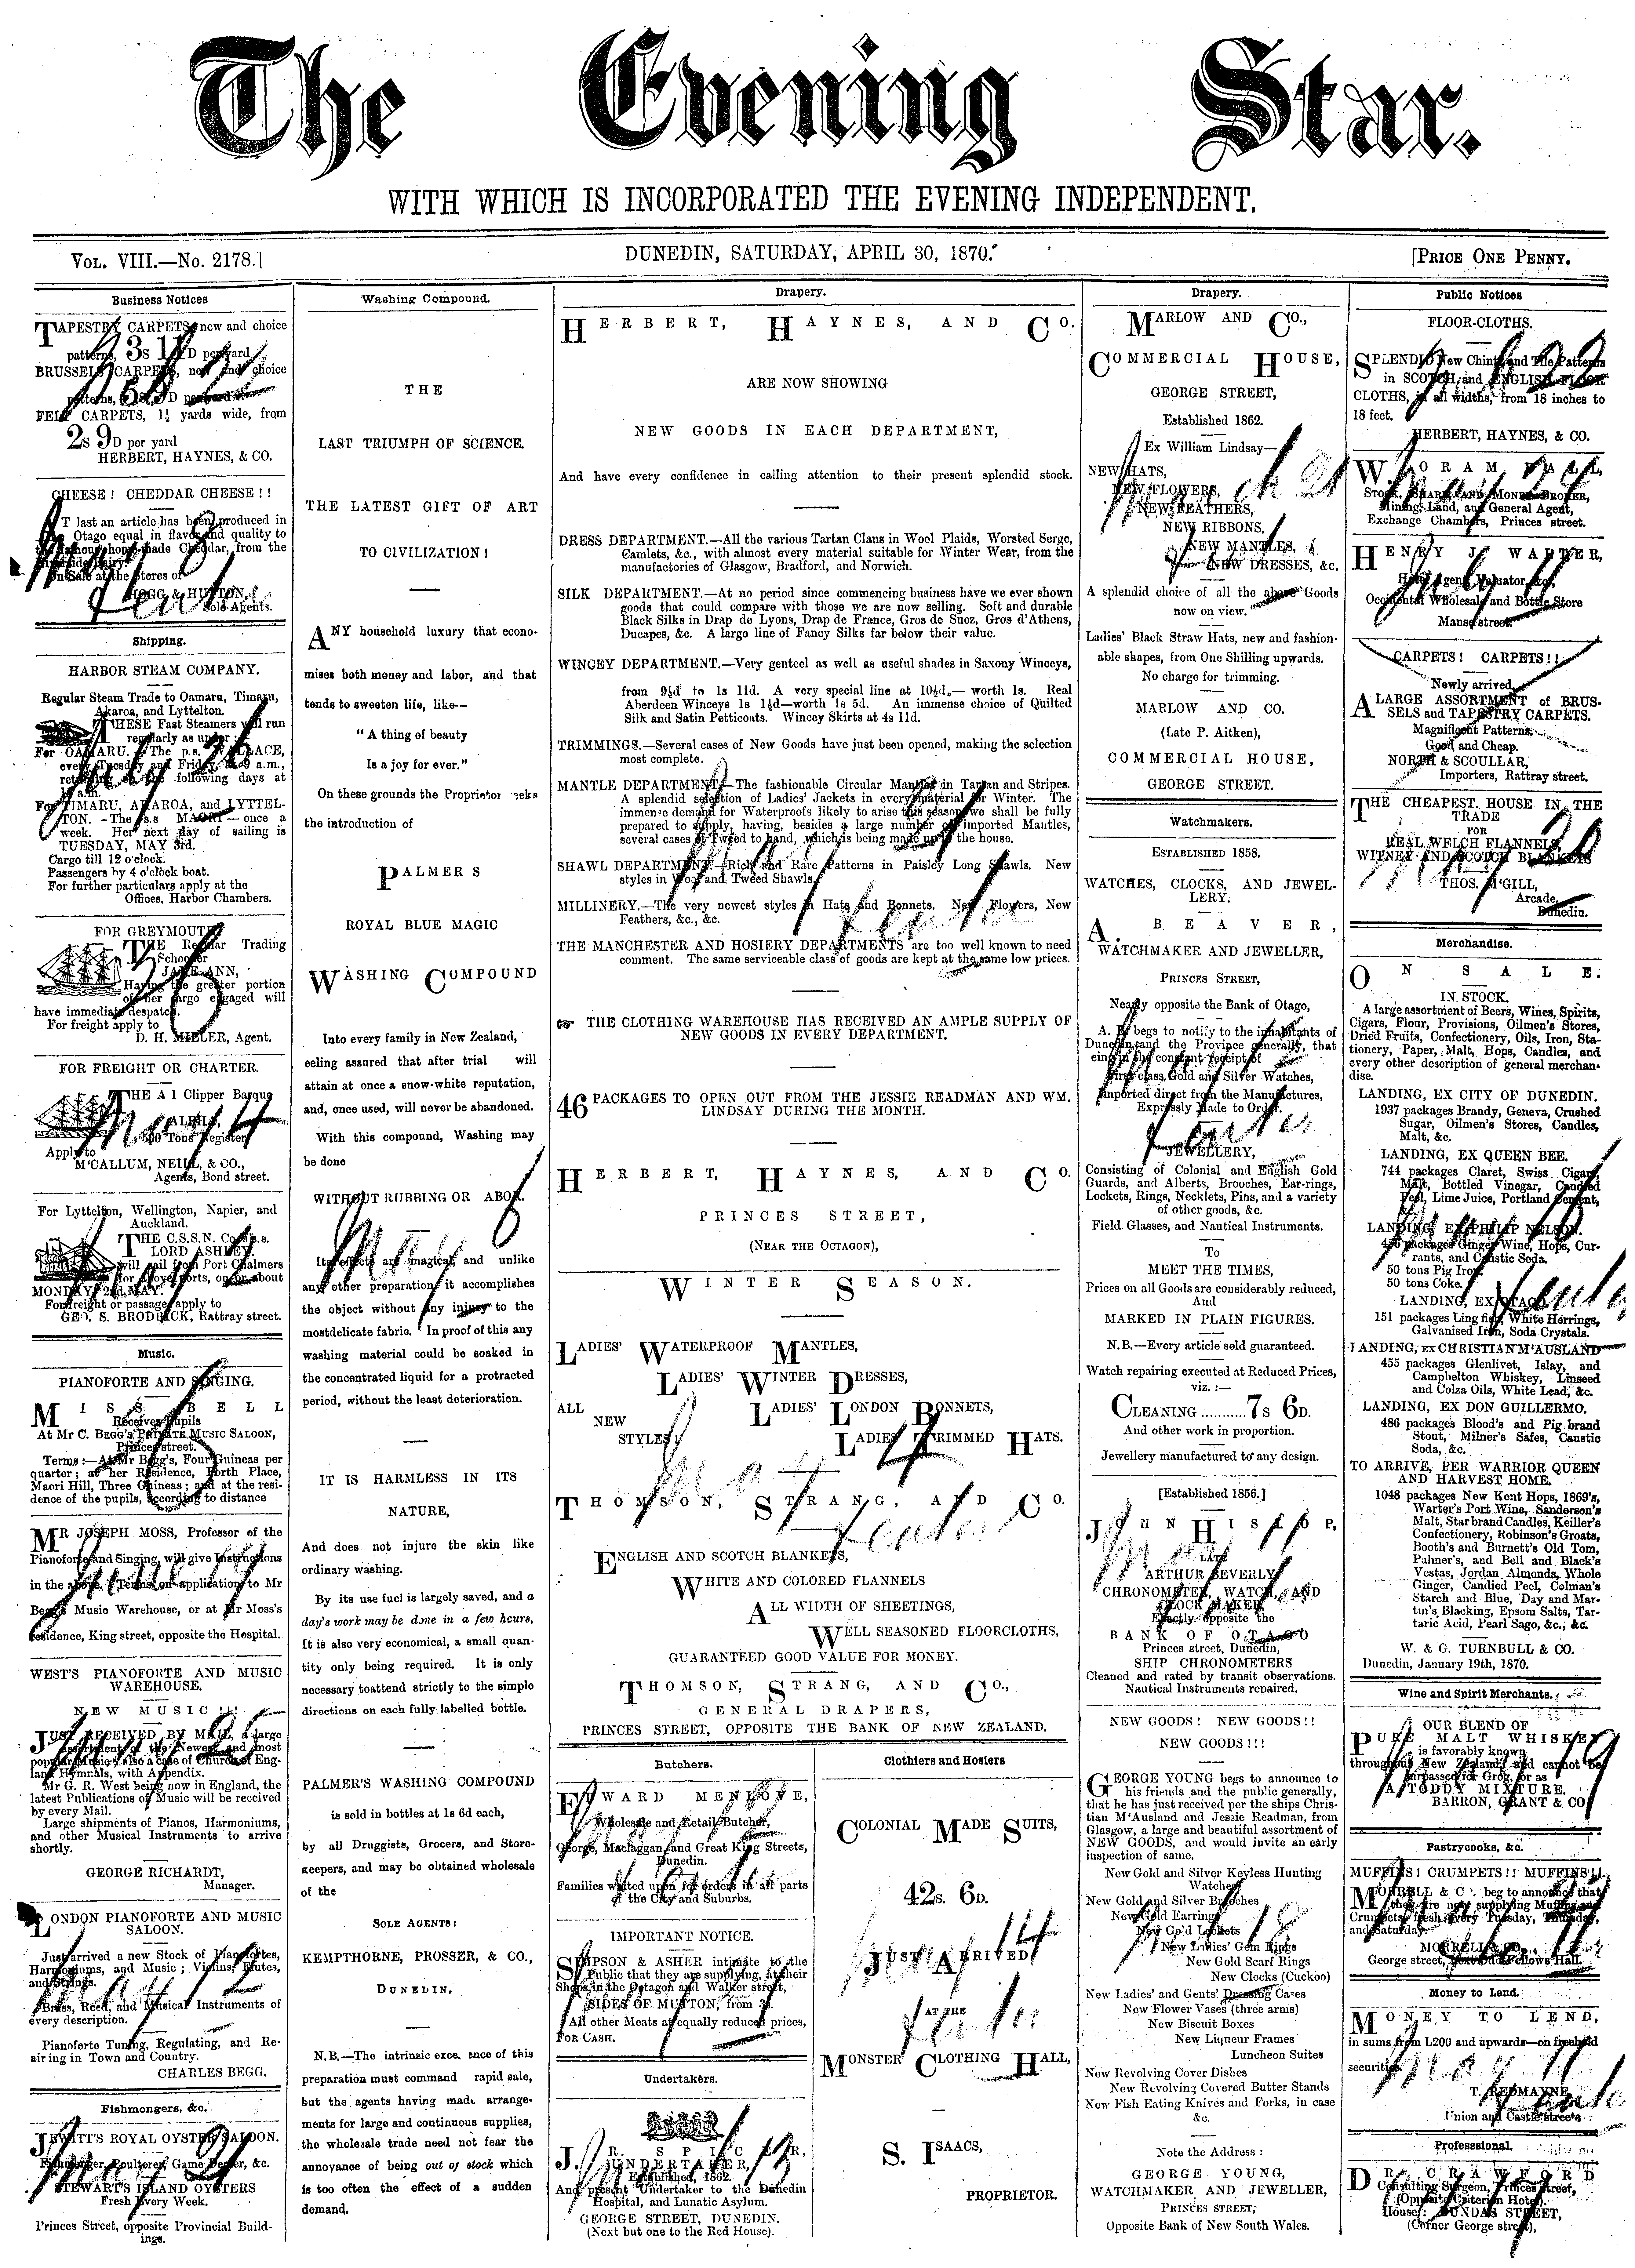 The Evening Star.
WITH WHICH IS INCORPORATED THE EVENING INDEPENDENT.
VOL. VIII.—No. 2178.]
DUNEDIN, SATURDAY, APRIL 30, 1870.
[PRICE ONE PENNY.
Business Notices
TAPESTRY CARPETS, new and choice
patterns, 3S 11D per yard
BRUSSELS CARPETS, new and choice
patterns, 5S 9D per yard
FELT CARPETS, 1½ yards wide, from
2S 9D per yard
HERBERT, HAYNES, & CO.
CHEESE! CHEDDAR CHEESE!!
AT last an article has been produced in
Otago equal in flavor and quality to
the famous home-made Cheddar, from the
Riverside Dairy.
On Sale at the Stores of
HOGG & HUTTON,
Sole Agents.
Shipping.
HARBOR STEAM COMPANY.
Regular Steam Trade to Oamaru, Timaru,
Akaroa, and Lyttelton.
THESE Fast Steamers will run
regularly as under:—
For OAMARU.—The p.s. WALLACE,
every Tuesday and Friday, at 9 a.m.,
returning on the following days at
a.m.
For TIMARU, AKAROA, and LYTTEL-
TON.—The s.s MAORI—once a
week. Her next day of sailing is
TUESDAY, MAY 3rd.
Cargo till 12 o'clock.
Passengers by 4 o'clock boat.
For further particulars apply at the
Offices, Harbor Chambers.
FOR GREYMOUTH.
THE Regular Trading
Schooner
JANE ANN,
Having the greater portion
of her cargo engaged will
have immediate despatch.
For freight apply to
D. H. MILLER, Agent.
FOR FREIGHT OR CHARTER.
THE A 1 Clipper Barque
500 Tons Register
Apply to
M'CALLUM, NEILL, & CO.,
Agents, Bond street.
For Lyttelton, Wellington, Napier, and
Auckland.
THE C.S.S.N. Co.'s s.s.
LORD ASHLEY.
will sail from Port Chalmers
for above ports, on or about
MONDAY, 2nd MAY.
For freight or passage apply to
GEO. S. BRODRICK, Rattray street.
Music.
PIANOFORTE AND SINGING.
MISS BELL
Receives Pupils
At Mr C. BEGG'S PRIVATE MUSIC SALOON,
Princes street.
Terms:—At Mr Begg's, Four Guineas per
quarter; at her Residence, Forth Place,
Maori Hill, Three Guineas; and at the resi-
dence of the pupils, according to distance
MR JOSEPH MOSS, Professor of the
Pianoforte and Singing, will give Instructions
in the above. Terms on application to Mr
Begg's Music Warehouse, or at Mr Moss's
residence, King street, opposite the Hospital.
WEST'S PIANOFORTE AND MUSIC
WAREHOUSE.
NEW MUSIC!!!
JUST RECEIVED BY MAIL, a large
assortment of the Newest and most
popular Music; also a case of Church of Eng-
land Hymnals, with Appendix.
Mr G. R. West being now in England, the
latest Publications of Music will be received
by every Mail.
Large shipments of Pianos, Harmoniums,
and other Musical Instruments to arrive
shortly.
GEORGE RICHARDT,
Manager.
LONDON PIANOFORTE AND MUSIC
SALOON.
Just arrived a new Stock of Pianofortes,
Harmoniums, and Music; Violins, Flutes,
and Strings.
Brass, Reed, and Musical Instruments of
every description.
Pianoforte Tuning, Regulating, and Re-
airing in Town and Country.
CHARLES BEGG.
Fishmongers, &c.
JEWITT'S ROYAL OYSTER SALOON.
Fishmonger, Poulterer, Game Dealer, &c.
STEWART'S ISLAND OYSTERS
Fresh Every Week.
Princes Street, opposite Provincial Build-
ings.
Washing Compound.
THE
LAST TRIUMPH OF SCIENCE.
THE LATEST GIFT OF ART
TO CIVILIZATION!
ANY household luxury that econo-
mises both money and labor, and that
tends to sweeten life, like—
"A thing of beauty
Is a joy for ever."
On these grounds the Proprietor seeks
the introduction of
PALMERS
ROYAL BLUE MAGIC
WASHING COMPOUND
Into every family in New Zealand,
eeling assured that after trial will
attain at once a snow-white reputation,
and, once used, will never be abandoned.
With this compound, Washing may
be done
WITHOUT RUBBING OR LABOR.
Its effects are magical, and unlike
any other preparation, it accomplishes
the object without any injury to the
mostdelicate fabric. In proof of this any
washing material could be soaked in
the concentrated liquid for a protracted
period, without the least deterioration.
IT IS HARMLESS IN ITS
NATURE,
And does not injure the skin like
ordinary washing.
By its use fuel is largely saved, and a
day's work may be done in a few hours.
It is also very economical, a small quan-
tity only being required. It is only
necessary toattend strictly to the simple
directions on each fully labelled bottle.
PALMER'S WASHING COMPOUND
is sold in bottles at 1s 6d each,
by all Druggists, Grocers, and Store-
keepers, and may be obtained wholesale
of the
SOLE AGENTS:
KEMPTHORNE, PROSSER, & CO.,
DUNEDIN.
N.B.—The intrinsic excellence of this
preparation must command rapid sale,
but the agents having made arrange-
ments for large and continuous supplies,
the wholesale trade need not fear the
annoyance of being out of stock which
is too often the effect of a sudden
demand.
Drapery.
HERBERT, HAYNES, AND CO.
ARE NOW SHOWING
NEW GOODS IN EACH DEPARTMENT,
And have every confidence in calling attention to their present splendid stock.
DRESS DEPARTMENT.—All the various Tartan Clans in Wool Plaids, Worsted Serge,
Camlets, &c., with almost every material suitable for Winter Wear, from the
manufactories of Glasgow, Bradford, and Norwich.
SILK DEPARTMENT.—At no period since commencing business have we ever shown
goods that could compare with those we are now selling. Soft and durable
Black Silks in Drap de Lyons, Drap de France, Gros de Suez, Gros d'Athens,
Ducapes, &c. A large line of Fancy Silks far below their value.
WINCEY DEPARTMENT.—Very genteel as well as useful shades in Saxony Winceys,
from 9½d to 1s 11d. A very special line at 10½d,— worth 1s. Real
Aberdeen Winceys 1s 1½d—worth 1s 5d. An immense choice of Quilted
Silk and Satin Petticoats. Wincey Skirts at 4s 11d.
TRIMMINGS.—Several cases of New Goods have just been opened, making the selection
most complete.
MANTLE DEPARTMENT.—The fashionable Circular Mantles in Tartan and Stripes.
A splendid selection of Ladies' Jackets in every material for Winter. The
immense demand for Waterproofs likely to arise this season we shall be fully
prepared to supply, having, besides a large number of imported Mantles,
several cases of Tweed to hand, which is being made up in the house.
SHAWL DEPARTMENT.—Rich and Rare Patterns in Paisley Long Shawls. New
styles in Wool and Tweed Shawls.
MILLINERY.—The very newest styles in Hats and Bonnets. New Flowers, New
Feathers, &c., &c.
THE MANCHESTER AND HOSIERY DEPARTMENTS are too well known to need
comment. The same serviceable class of goods are kept at the same low prices.
☞ THE CLOTHING WAREHOUSE HAS RECEIVED AN AMPLE SUPPLY OF
NEW GOODS IN EVERY DEPARTMENT.
46 PACKAGES TO OPEN OUT FROM THE JESSIE READMAN AND WM.
LINDSAY DURING THE MONTH.
HERBERT, HAYNES, AND CO.
PRINCES STREET,
(NEAR THE OCTAGON),
WINTER SEASON.
LADIES' WATERPROOF MANTLES,
LADIES' WINTER DRESSES,
ALL
NEW
STYLES!
LADIES' LONDON BONNETS,
LADIES' TRIMMED HATS.
THOMSON, STRANG, AND CO.
ENGLISH AND SCOTCH BLANKETS,
WHITE AND COLORED FLANNELS
ALL WIDTH OF SHEETINGS,
WELL SEASONED FLOORCLOTHS,
GUARANTEED GOOD VALUE FOR MONEY.
THOMSON, STRANG, AND CO.,
GENERAL DRAPERS,
PRINCES STREET, OPPOSITE THE BANK OF NEW ZEALAND.
Butchers.
EDWARD MENLOVE,
Wholesale and Retail Butcher,
George, Maclaggan, and Great King Streets,
Dunedin.
Families waited upon for orders in all parts
of the City and Suburbs.
IMPORTANT NOTICE.
SIMPSON & ASHER intimate to the
Public that they are supplying, at their
Shops, in the Octagon and Walker street,
SIDES OF MUTTON, from
All other Meats at equally reduced prices,
FOR CASH.
Undertakers.
J. R. SPICER,
UNDERTAKER,
Established, 1862.
And present Undertaker to the Dunedin
Hospital, and Lunatic Asylum.
GEORGE STREET, DUNEDIN.
(Next but one to the Red House).
Clothiers and Hosiers
COLONIAL MADE SUITS,
42S. 6D.
JUST ARRIVED
AT THE
MONSTER CLOTHING HALL,
S. ISAACS,
PROPRIETOR.
Drapery.
MARLOW AND CO.,
COMMERCIAL HOUSE,
GEORGE STREET,
Established 1862.
Ex William Lindsay—
NEW HATS,
NEW FLOWERS,
NEW FEATHERS,
NEW RIBBONS,
NEW MANTLES,
NEW DRESSES, &c.
A splendid choice of all the above Goods
now on view.
Ladies' Black Straw Hats, new and fashion-
able shapes, from One Shilling upwards.
No charge for trimming.
MARLOW AND CO.
(Late P. Aitken),
COMMERCIAL HOUSE,
GEORGE STREET.
Watchmakers.
ESTABLISHED 1858.
WATCHES, CLOCKS, AND JEWEL-
LERY.
A. BEAVER,
WATCHMAKER AND JEWELLER,
PRINCES STREET,
Nearly opposite the Bank of Otago,
A. B. begs to notify to the inhabitants of
Dunedin and the Province generally, that
eing in the constant receipt of
First-class Gold and Silver Watches,
Imported direct from the Manufactures,
Expressly Made to Order.
JEWELLERY,
Consisting of Colonial and English Gold
Guards, and Alberts, Brooches, Ear-rings,
Lockets, Rings, Necklets, Pins, and a variety
of other goods, &c.
Field Glasses, and Nautical Instruments.
To
MEET THE TIMES,
Prices on all Goods are considerably reduced,
And
MARKED IN PLAIN FIGURES.
N.B.—Every article sold guaranteed.
Watch repairing executed at Reduced Prices,
viz.:—
CLEANING ..........7S 6D.
And other work in proportion.
Jewellery manufactured to any design.
[Established 1856.]
JOHN HISLOP,
LATE
ARTHUR BEVERLY
CHRONOMETER, WATCH, AND
CLOCK MAKER,
Exactly opposite the
BANK OF OTAGO
Princes street, Dunedin,
SHIP CHRONOMETERS
Cleaned and rated by transit observations.
Nautical Instruments repaired.
NEW GOODS! NEW GOODS!!
NEW GOODS!!!
GEORGE YOUNG begs to announce to
his friends and the public generally,
that he has just received per the ships Chris-
tian M'Ausland and Jessie Readman, from
Glasgow, a large and beautiful assortment of
NEW GOODS, and would invite an early
inspection of same.
New Gold and Silver Keyless Hunting
Watches
New Gold and Silver Brooches
New Gold Earrings
New Gold Lockets
New Ladies' Gem Rings
New Gold Scarf Rings
New Clocks (Cuckoo)
New Ladies' and Gents' Dressing Cases
New Flower Vases (three arms)
New Biscuit Boxes
New Liqueur Frames
Luncheon Suites
New Revolving Cover Dishes
New Revolving Covered Butter Stands
New Fish Eating Knives and Forks, in case
&c.
Note the Address:
GEORGE YOUNG,
WATCHMAKER AND JEWELLER,
PRINCES STREET;
Opposite Bank of New South Wales.
Public Notices
FLOOR-CLOTHS.
SPLENDID New Chintz and Tile Patterns
in SCOTCH and ENGLISH FLOOR
CLOTHS, in all widths, from 18 inches to
18 feet.
HERBERT, HAYNES, & CO.
W. ORAM BALL,
Stock, Share, and Money Broker,
Mining, Land, and General Agent,
Exchange Chambers, Princes street.
HENRY J. WALTER,
Hotel Agent, Valuator, &c.,
Occidental Wholesale and Bottle Store
Manse street.
CARPETS! CARPETS!!
Newly arrived,
A LARGE ASSORTMENT of BRUS-
SELS and TAPESTRY CARPETS.
Magnificent Patterns.
Good and Cheap.
NORTH & SCOULLAR,
Importers, Rattray street.
THE CHEAPEST HOUSE IN THE
TRADE
FOR
REAL WELCH FLANNELS,
WITNEY AND SCOTCH BLANKETS
THOS. M'GILL,
Arcade,
Dunedin.
Merchandise.
ON SALE.
IN STOCK.
A large assortment of Beers, Wines, Spirits,
Cigars, Flour, Provisions, Oilmen's Stores,
Dried Fruits, Confectionery, Oils, Iron, Sta-
tionery, Paper, Malt, Hops, Candles, and
every other description of general merchan-
dise.
LANDING, EX CITY OF DUNEDIN.
1937 packages Brandy, Geneva, Crushed
Sugar, Oilmen's Stores, Candles,
Malt, &c.
LANDING, EX QUEEN BEE.
744 packages Claret, Swiss Cigars,
Malt, Bottled Vinegar, Candied
Peel, Lime Juice, Portland Cement,
&c.
LANDING, EX PHILIP NELSON.
packages Ginger Wine, Hops, Cur-
rants, and Caustic Soda.
50 tons Pig Iron.
50 tons Coke.
LANDING, EX OTAGO.
151 packages Ling fish, White Herrings,
Galvanised Iron, Soda Crystals.
LANDING, EX CHRISTIAN M'AUSLAND
455 packages Glenlivet, Islay, and
Campbelton Whiskey, Linseed
and Colza Oils, White Lead, &c.
LANDING, EX DON GUILLERMO.
486 packages Blood's and Pig brand
Stout, Milner's Safes, Caustic
Soda, &c.
TO ARRIVE, PER WARRIOR QUEEN
AND HARVEST HOME.
1048 packages New Kent Hops, 1869's,
Warter's Port Wine, Sanderson's
Malt, Star brand Candles, Keiller's
Confectionery, Robinson's Groats,
Booth's and Burnett's Old Tom,
Palmer's, and Bell and Black's
Vestas, Jordan Almonds, Whole
Ginger, Candied Peel, Colman's
Starch and Blue, Day and Mar-
tin's Blacking, Epsom Salts, Tar-
taric Acid, Pearl Sago, &c., &c.
W. & G. TURNBULL & CO.
Dunedin, January 19th, 1870.
Wine and Spirit Merchants.
OUR BLEND OF
PURE MALT WHISKEY
is favorably known
throughout New Zealand, and cannot be
surpassed for Grog, or as
A TODDY MIXTURE.
BARRON, GRANT & CO
Pastrycooks, &c.
MUFFINS! CRUMPETS!! MUFFINS!!
MORRELL & CO. beg to announce that
they are now supplying Muffins and
Crumpets fresh every Tuesday, Thursday,
and Saturday.
MORRELL & CO.,
George street, next Odd Fellows' Hall.
Money to Lend.
MONEY TO LEND,
in sums from L200 and upwards—on freehold
securities.
T. REDMAYNE,
Union and Castle streets
Professsional.
DR. CRAWFORD
Consulting Surgeon, Princes street,
(Opposite Criterion Hotel).
House: DUNDAS STREET,
(Corner George street),